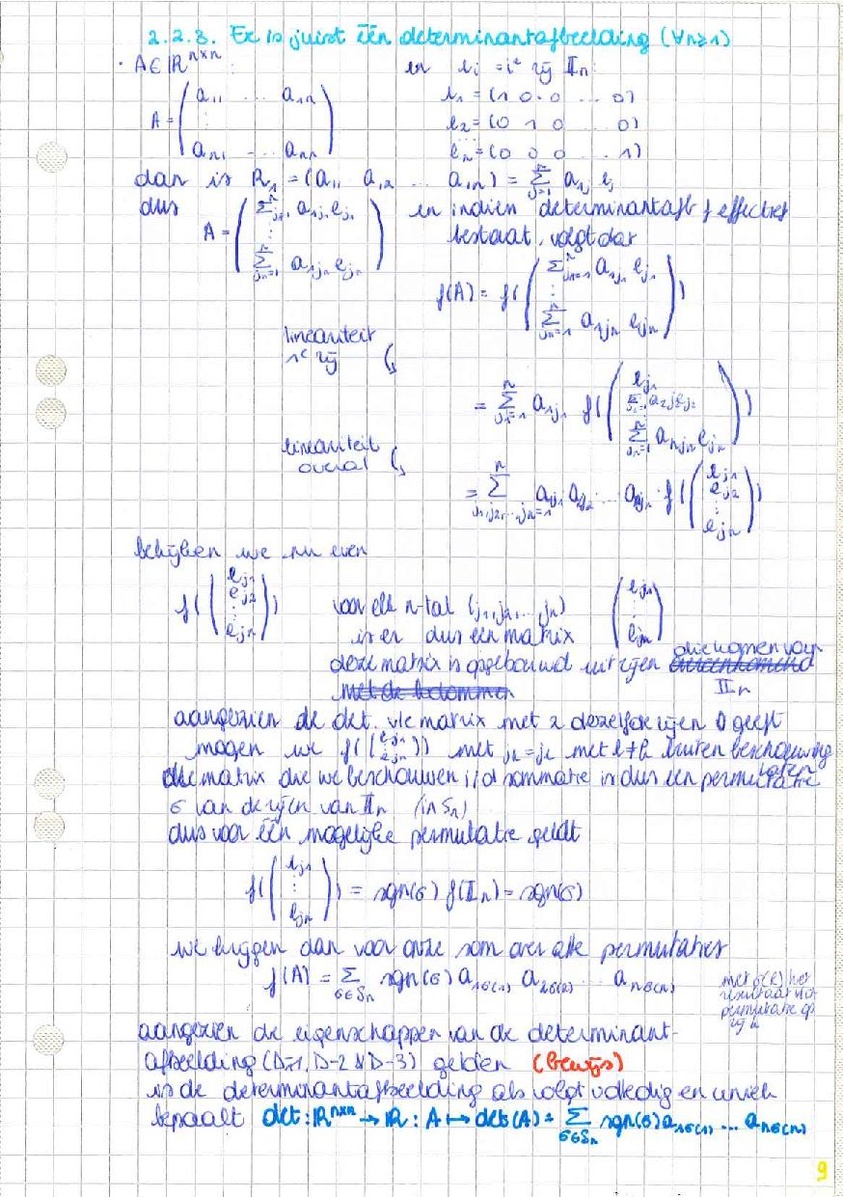 2.2.3. Er is juist één determinantafbeelding (∀n≥1)
· A∈ℝⁿˣⁿ: en eᵢ = iᵉ rij 𝕀ₙ:
A = (a₁₁ ... a₁ₙ ; ⋮ ; aₙ₁ ... aₙₙ)
e₁ = (1 0 0 ... 0)
e₂ = (0 1 0 ... 0)
eₙ = (0 0 0 ... 1)
dan is R₁ = (a₁₁ a₁₂ ... a₁ₙ) = Σⁿⱼ₌₁ a₁ⱼ eⱼ
dus A = (Σⁿⱼ₁₌₁ a₁ⱼ₁ eⱼ₁ ; ⋮ ; Σⁿⱼₙ₌₁ a₁ⱼₙ eⱼₙ) en indien determinantafb f effectief
bestaat, volgt dat
f(A) = f((Σⁿⱼ₁₌₁ a₁ⱼ₁ eⱼ₁ ; ⋮ ; Σⁿⱼₙ₌₁ a₁ⱼₙ eⱼₙ))
lineariteit
1ᵉ rij
= Σⁿⱼ₁₌₁ a₁ⱼ₁ f((eⱼ₁ ; Σ a₂ⱼ₂ eⱼ₂ ; Σⁿⱼₙ₌₁ aₙⱼₙ eⱼₙ))
lineariteit
overal
= Σⁿⱼ₁,ⱼ₂,...,ⱼₙ₌₁ a₁ⱼ₁ a₂ⱼ₂ ... aₙⱼₙ · f((eⱼ₁ ; eⱼ₂ ; ⋮ ; eⱼₙ))
bekijken we nu even
f((eⱼ₁ ; eⱼ₂ ; ⋮ ; eⱼₙ)) voor elk n-tal (j₁,j₂,...,jₙ)
is er dus een matrix (eⱼ₁ ; ⋮ ; eⱼₙ)
deze matrix is opgebouwd uit rijen die komen van
𝕀ₙ
aangezien de det. v/e matrix met 2 dezelfde rijen 0 geeft
mogen we f((eⱼ₁ ; eⱼₙ)) met jₖ = jₗ met l≠k buiten beschouwing
laten
die matrix die we beschouwen i/d sommatie is dus een permutatie
σ van de rijen van 𝕀ₙ (in Sₙ)
dus voor één mogelijke permutatie geldt
f((eⱼ₁ ; ⋮ ; eⱼₙ)) = sgn(σ) f(𝕀ₙ) = sgn(σ)
we krijgen dan voor onze som over alle permutaties
f(A) = Σ_σ∈Sₙ sgn(σ) a₁σ(1) a₂σ(2) ... aₙσ(n)
met σ(k) het
resultaat v/d
permutatie op
rij k
aangezien de eigenschappen van de determinant-
afbeelding (D-1, D-2 & D-3) gelden (bewijs)
is de determinantafbeelding als volgt volledig en uniek
bepaalt det: ℝⁿˣⁿ → ℝ : A ↦ det(A) = Σ_σ∈Sₙ sgn(σ) a₁σ(1) ... aₙσ(n)
9